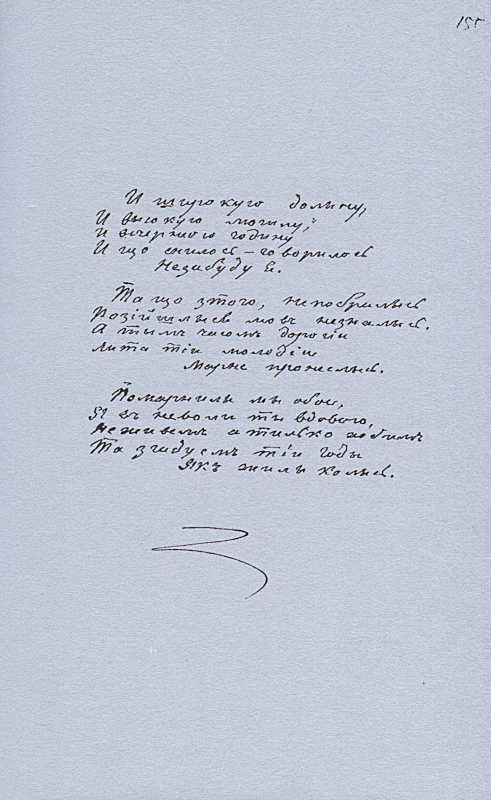 155
И широкую долыну,
И высокую могылу,
И вечернюю годыну
И що снилося — говорилося
Незабуду я.
Та що зтого, непобралысь
Розійшлысь мовъ незналысь.
А тымъ часомъ дорогіи
Лита тіи молодіи
Марне пронеслысь.
Помарнилы мы обое,
Я въ неволи ты вдовою,
Неживемъ а тилько ходымъ
Та згадуемъ тіи годы
Якъ жилы колысь.